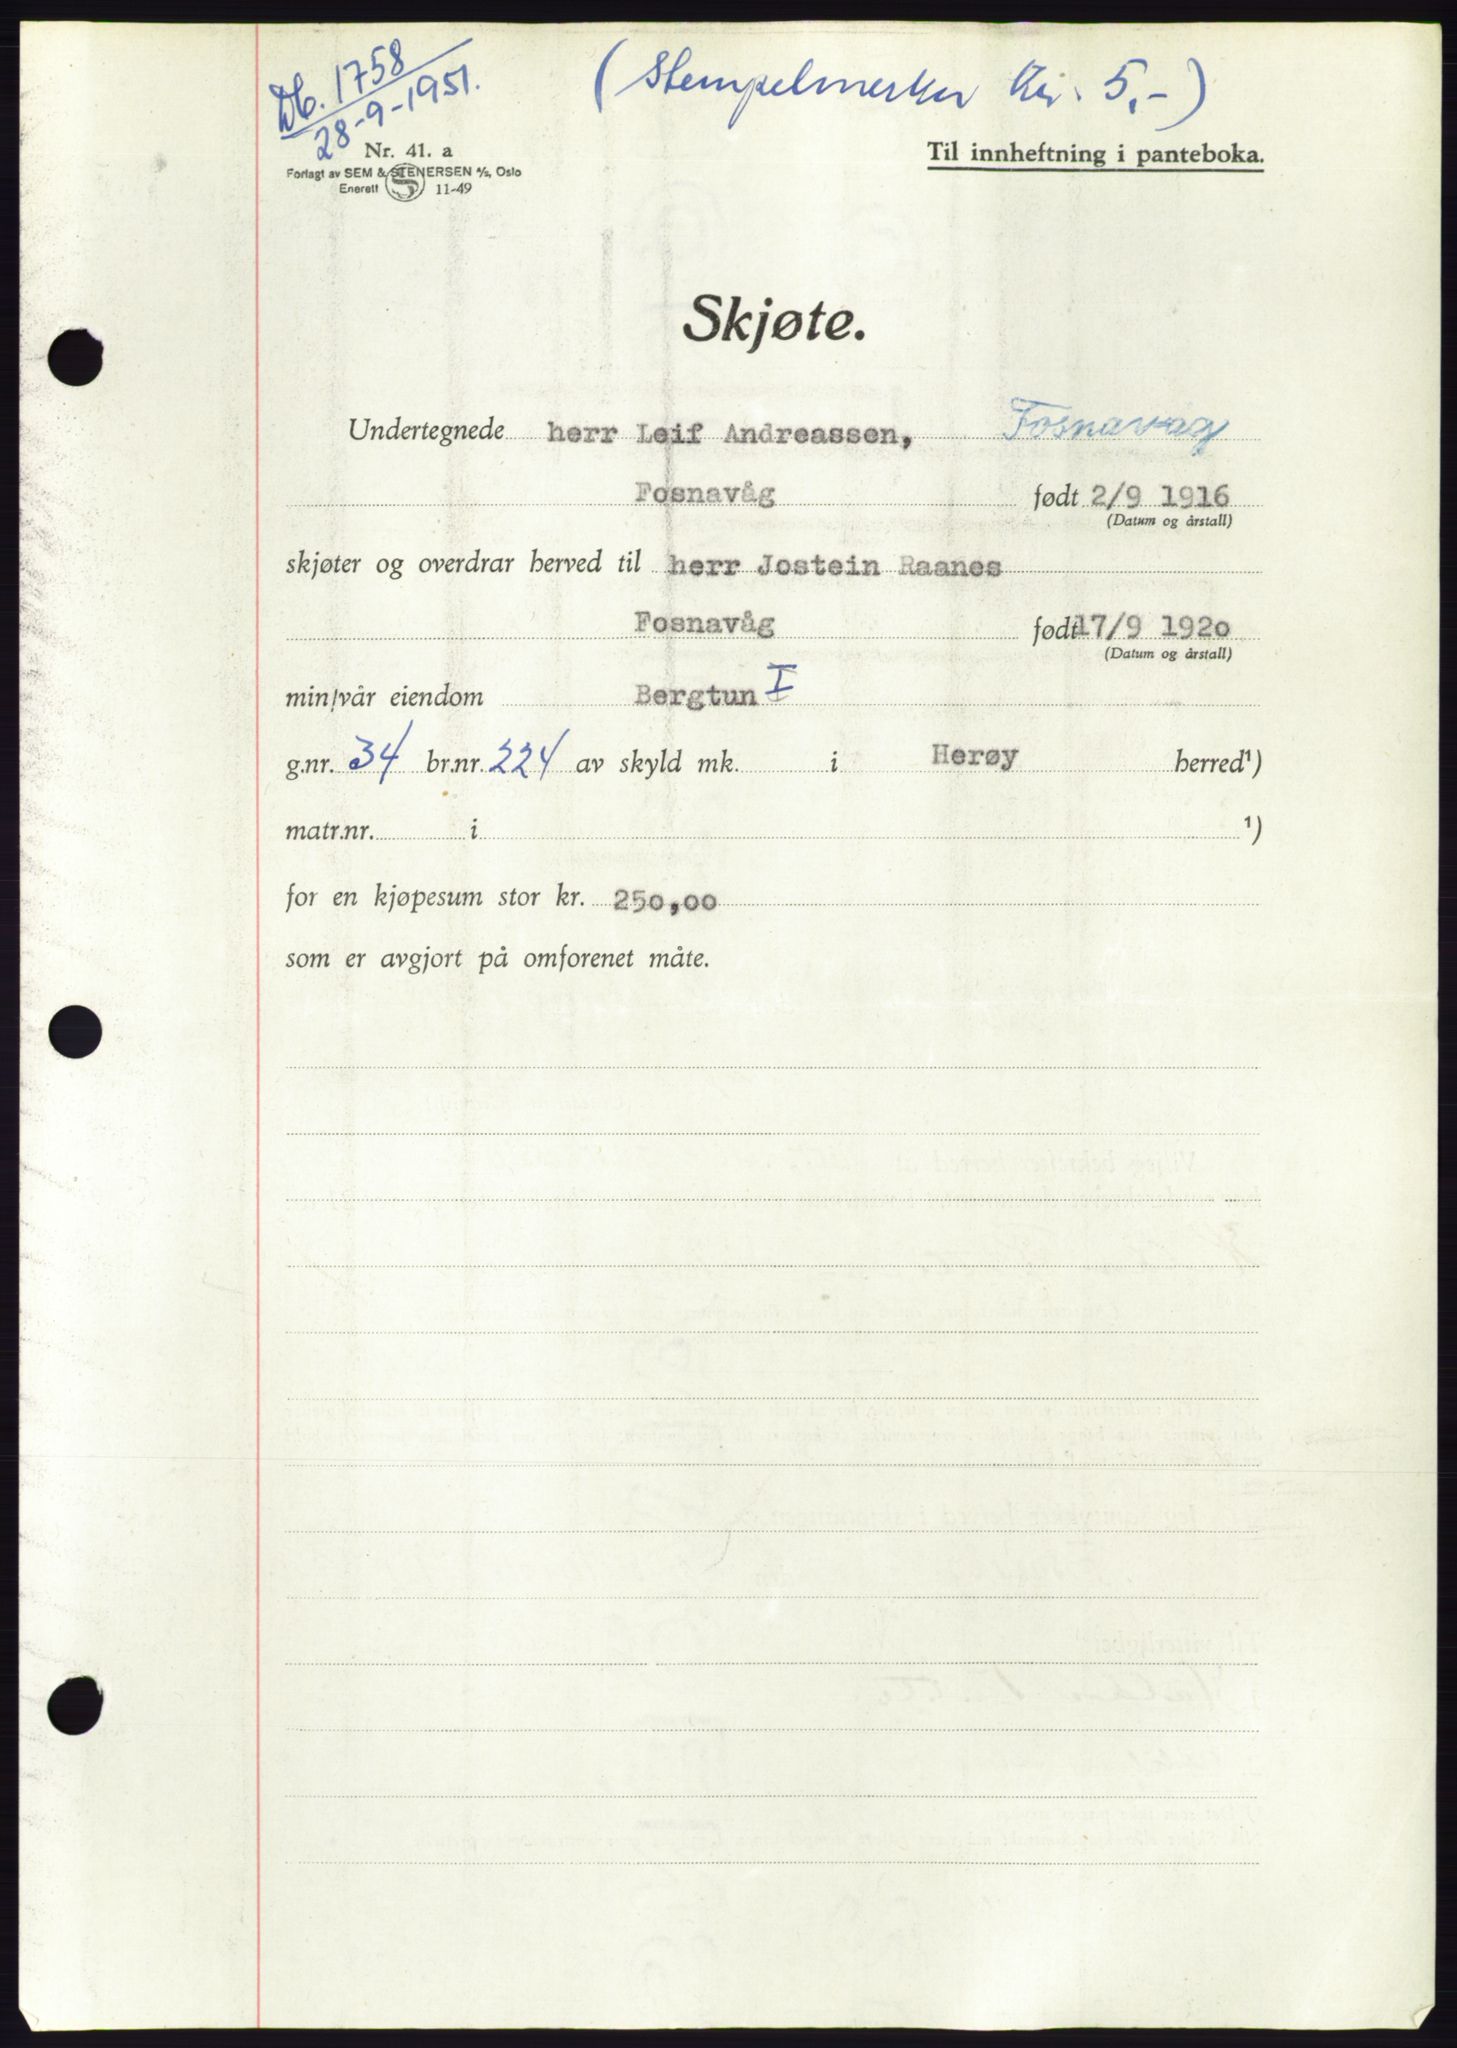 Db. 1758
28-9-1951.
(Stempelmerker Kr. 5,-)
Nr. 41. a
Forlagt av SEM & STENERSEN A/S, Oslo
Enerett S 11-49
Til innheftning i panteboka.
Skjøte.
Undertegnede herr Leif Andreassen, Fosnavåg
Fosnavåg født 2/9 1916
(Datum og årstall)
skjøter og overdrar herved til herr Jostein Raanes
Fosnavåg født 17/9 1920
(Datum og årstall)
min/vår eiendom Bergtun I
g.nr. 34 br.nr. 224 av skyld mk. i Herøy herred¹)
matr.nr. i ¹)
for en kjøpesum stor kr. 250,00
som er avgjort på omforenet måte.